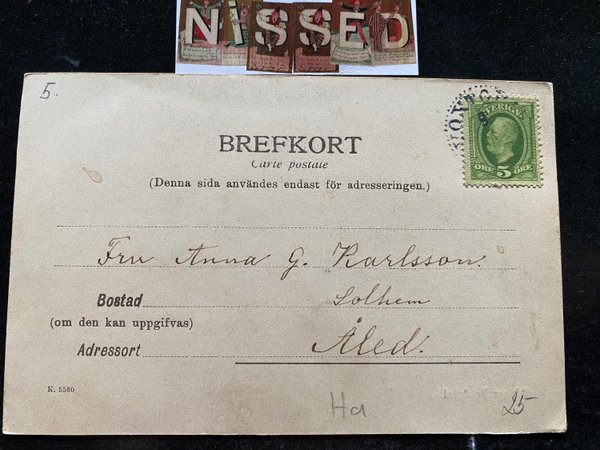 NISSED
5.
BREFKORT
Carte postale
(Denna sida användes endast för adresseringen.)
SVERIGE
ÖRE 5 ÖRE
Fru Anna G. Karlsson.
Bostad Solhem
(om den kan uppgifvas)
Adressort Åled.
K. 5560
Ha 25